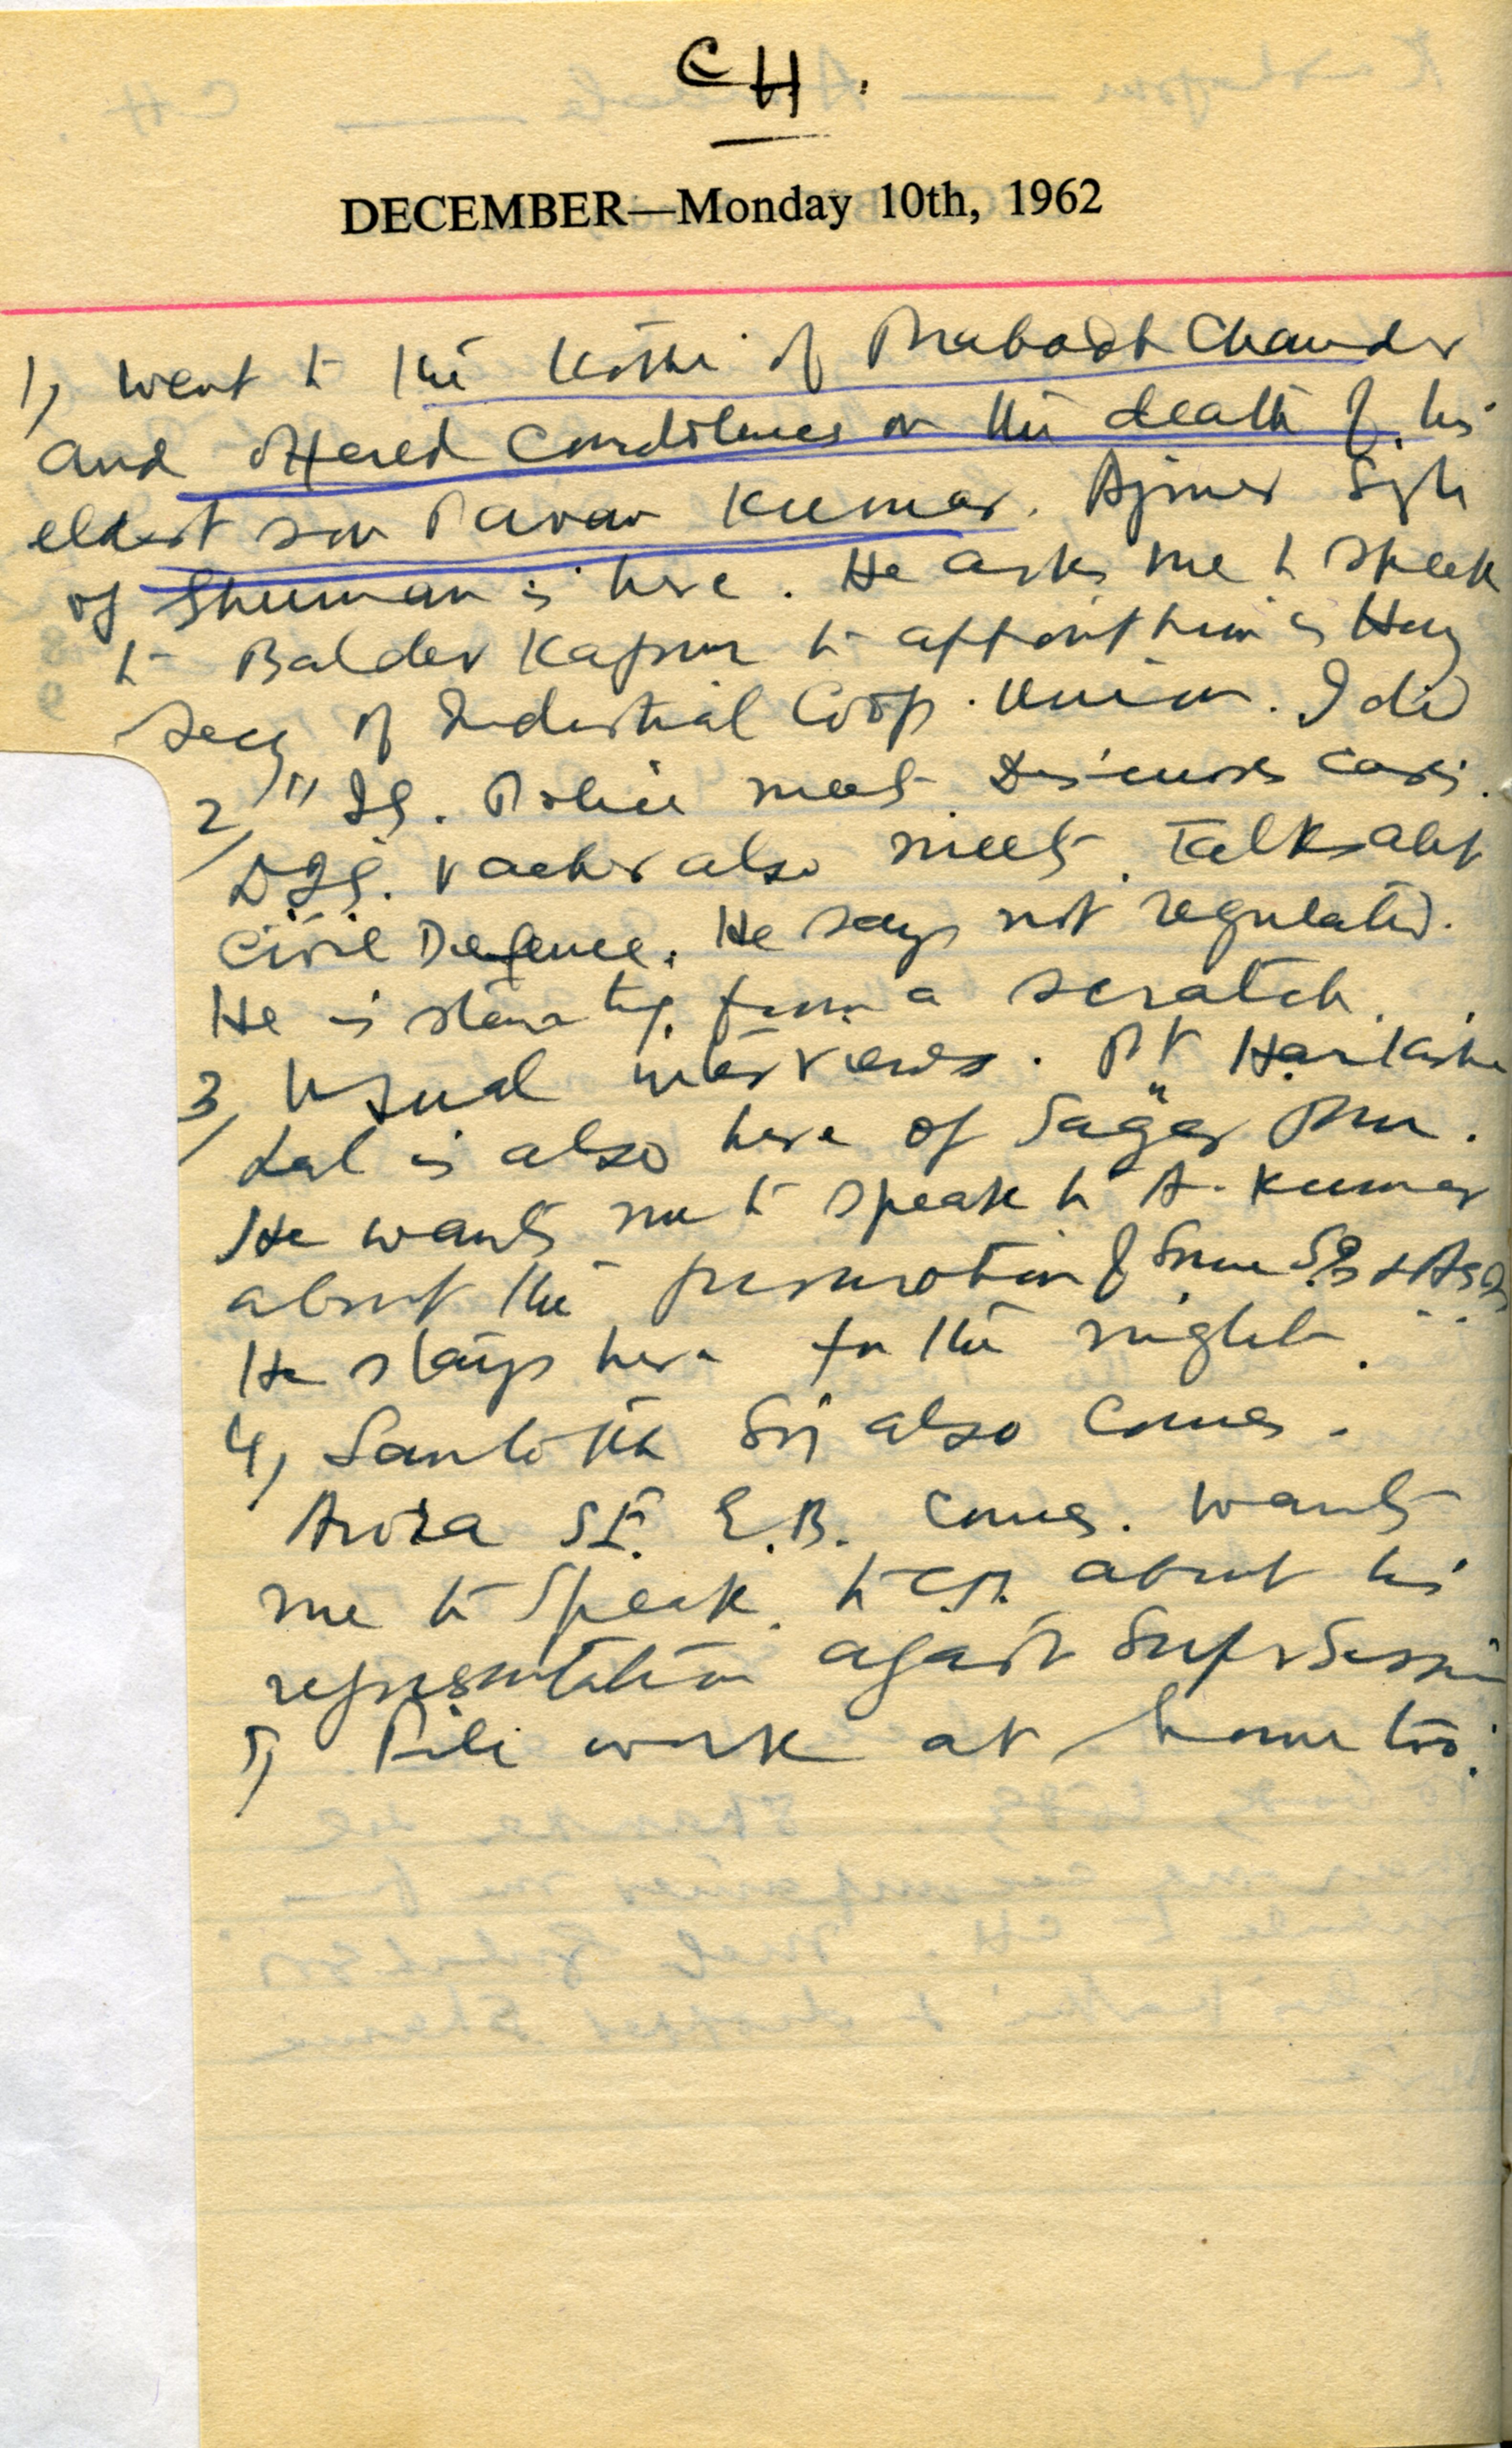 CH.
DECEMBER—Monday 10th, 1962
1, Went to the Kothi of Prabodh Chander
and offered Condolences on the death of his
eldest son Pavan Kumar. Ajmer Sgh
of Shuman is here. He asks me to speak
to Baldev Kapur to appoint him as Hony
Secy of Industrial Coop. Union. I did
2, IG. Police meets. Discusses cases.
DIG. Vacher also meets. Talks abt
Civil Defence. He says not regulated.
He is starting from a scratch.
3, Usual interviews. Pt Harkishe
Lal is also here of Sagar Pur.
He wants me to speak to A. Kumar
about the promotion of some
He stays here for the night.
4, Santokh also comes.
Arora S.E. E.B. comes. Wants
me to speak to about his
representation against Supersessin
5, File work at home too.